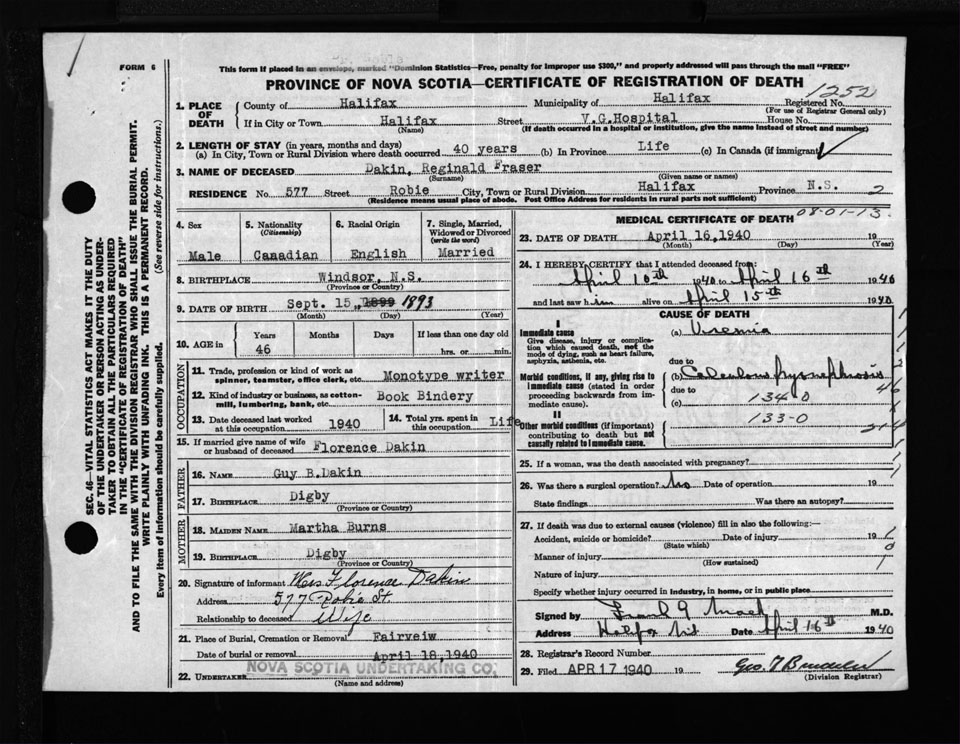 FORM 6
This form if placed in an envelope, marked "Dominion Statistics—Free, penalty for improper use $300," and properly addressed will pass through the mail "FREE"
PROVINCE OF NOVA SCOTIA—CERTIFICATE OF REGISTRATION OF DEATH
1252
1. PLACE OF DEATH
County of Halifax Municipality of Halifax Registered No.
(For use of Registrar General only)
If in City or Town Halifax Street V.G.Hospital House No.
(Name) (If death occurred in a hospital or institution, give the name instead of street and number)
2. LENGTH OF STAY (in years, months and days)
(a) In City, Town or Rural Division where death occurred 40 years (b) In Province Life (c) In Canada (if immigrant)
3. NAME OF DECEASED Dakin, Reginald Fraser
(Surname) (Given name or names)
RESIDENCE No. 577 Street Robie City, Town or Rural Division Halifax Province N.S. 2
(Residence means usual place of abode. Post Office Address for residents in rural parts not sufficient)
4. Sex Male
5. Nationality (Citizenship) Canadian
6. Racial Origin English
7. Single, Married, Widowed or Divorced (write the word) Married
8. BIRTHPLACE Windsor, N.S.
(Province or Country)
9. DATE OF BIRTH Sept. 15, 1899 1893
(Month) (Day) (Year)
10. AGE in Years 46 Months Days If less than one day old hrs. or min.
OCCUPATION
11. Trade, profession or kind of work as spinner, teamster, office clerk, etc. Monotype writer
12. Kind of industry or business, as cotton-mill, lumbering, bank, etc. Book Bindery
13. Date deceased last worked at this occupation 1940
14. Total yrs. spent in this occupation Life
15. If married give name of wife or husband of deceased Florence Dakin
FATHER
16. NAME Guy B.Dakin
17. BIRTHPLACE Digby
(Province or Country)
MOTHER
18. MAIDEN NAME Martha Burns
19. BIRTHPLACE Digby
(Province or Country)
20. Signature of informant Mrs Florence Dakin
Address 577 Robie St
Relationship to deceased Wife
21. Place of Burial, Cremation or Removal Fairveiw
Date of burial or removal April 18, 1940
22. UNDERTAKER NOVA SCOTIA UNDERTAKING CO.
(Name and address)
MEDICAL CERTIFICATE OF DEATH 08-01-13.
23. DATE OF DEATH April 16,1940 19
(Month) (Day) (Year)
24. I HEREBY CERTIFY that I attended deceased from:
April 10th 1940 to April 16th 1940
and last saw him alive on April 15th 1940
CAUSE OF DEATH
I
Immediate cause
Give disease, injury or complication which caused death, not the mode of dying, such as heart failure, asphyxia, asthenia, etc.
(a) Uremia
due to
Morbid conditions, if any, giving rise to immediate cause (stated in order proceeding backwards from immediate cause).
(b) Calculous pyonephrosis
due to
(c) 134 0
II
Other morbid conditions (if important) contributing to death but not causally related to immediate cause.
133-0
25. If a woman, was the death associated with pregnancy?
26. Was there a surgical operation? No Date of operation 19
State findings Was there an autopsy?
27. If death was due to external causes (violence) fill in also the following:—
Accident, suicide or homicide? Date of injury 19
(State which)
Manner of injury
(How sustained)
Nature of injury
Specify whether injury occurred in industry, in home, or in public place
Signed by Frank G Mack M.D.
Address Halifax N.S. Date April 16th 1940
28. Registrar's Record Number
29. Filed APR 17 1940 19
(Division Registrar)
SEC. 46—VITAL STATISTICS ACT MAKES IT THE DUTY
OF THE UNDERTAKER OR PERSON ACTING AS UNDER-
TAKER TO OBTAIN ALL THE PARTICULARS REQUIRED
IN THE "CERTIFICATE OF REGISTRATION OF DEATH"
AND TO FILE THE SAME WITH THE DIVISION REGISTRAR WHO SHALL ISSUE THE BURIAL PERMIT.
WRITE PLAINLY WITH UNFADING INK. THIS IS A PERMANENT RECORD.
Every item of information should be carefully supplied. (See reverse side for instructions.)